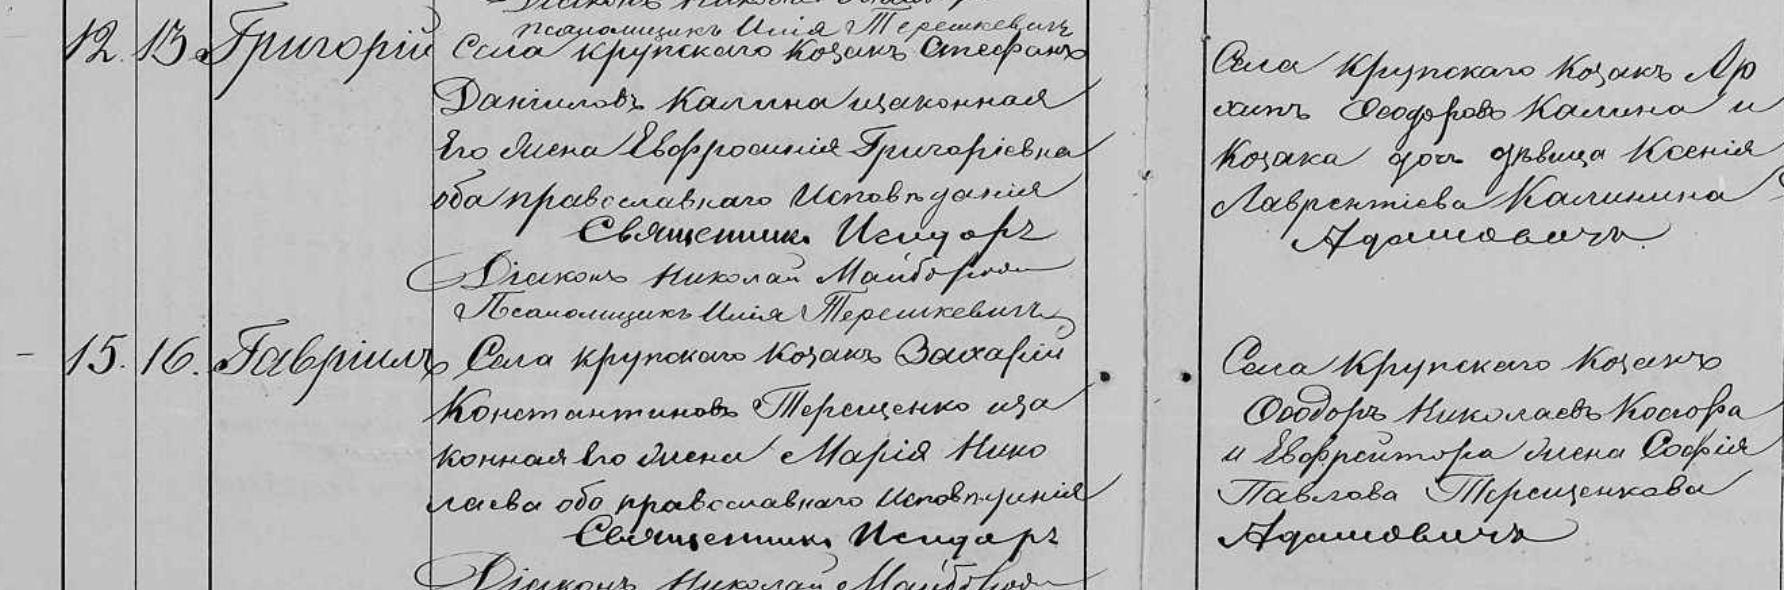 Діаконъ Николай
Псаломщикъ Илія Терешкевичъ
12. 13. Григорій
Села Крупскаго Козакъ Стефанъ
Даніиловъ Калина изаконная
Его жена Евфросинія Григоріевна
оба православнаго Исповѣданія
Священникъ Исидоръ
Діаконъ Николай Майборода
Псаломщикъ Илія Терешкевичъ
Села Крупскаго Козакъ Ар
хипъ Ѳеодоровъ Калина и
Козака дочь дѣвица Ксенія
Лаврентіева Калинина
Адамовичъ
15. 16. Гавріилъ
Села Крупскаго Козакъ Захарій
Константиновъ Терещенко иза
конная Его жена Марія Нико
лаева оба православнаго Исповѣданія
Священникъ Исидоръ
Діаконъ Николай Майборода
Села Крупскаго Козакъ
Ѳеодоръ Николаевъ Костюра
и Евфрейтора жена Софія
Павлова Терещенкова
Адамовичъ